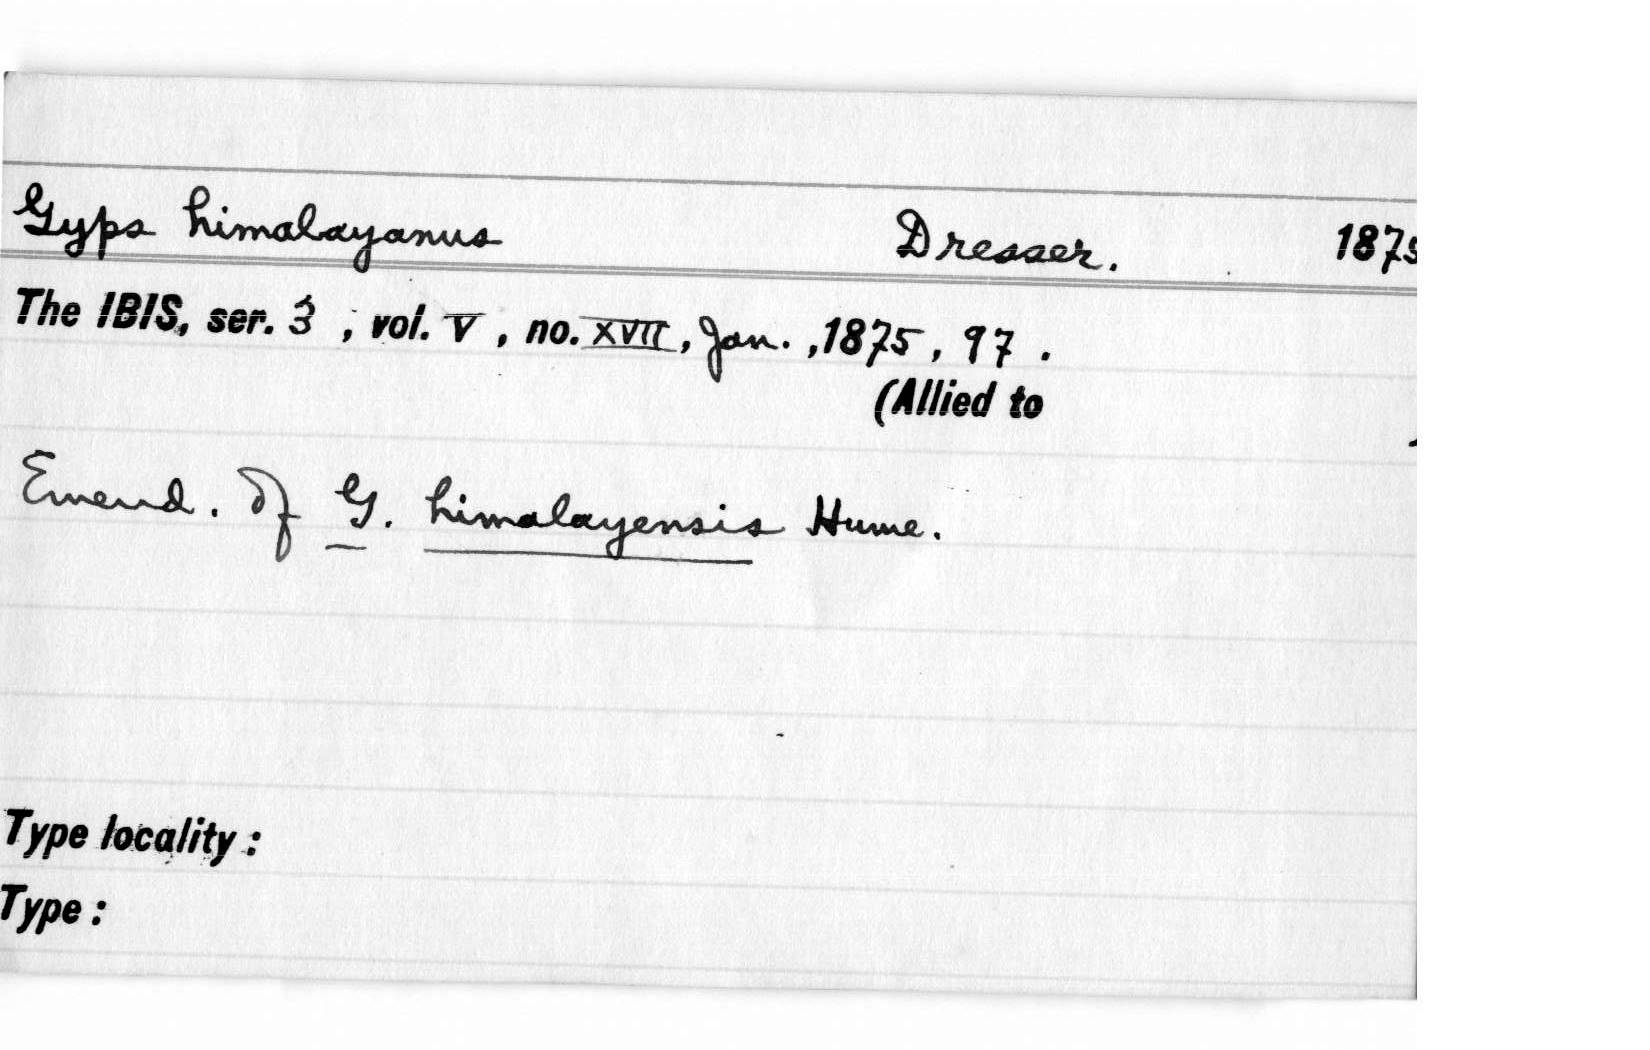 Gyps himalayanus Dresser. 1875
The IBIS, ser. 3 , vol. V , no. XVII , Jan. , 1875 , 97 .
(Allied to
Emend. of G. himalayensis Hume.
Type locality :
Type :